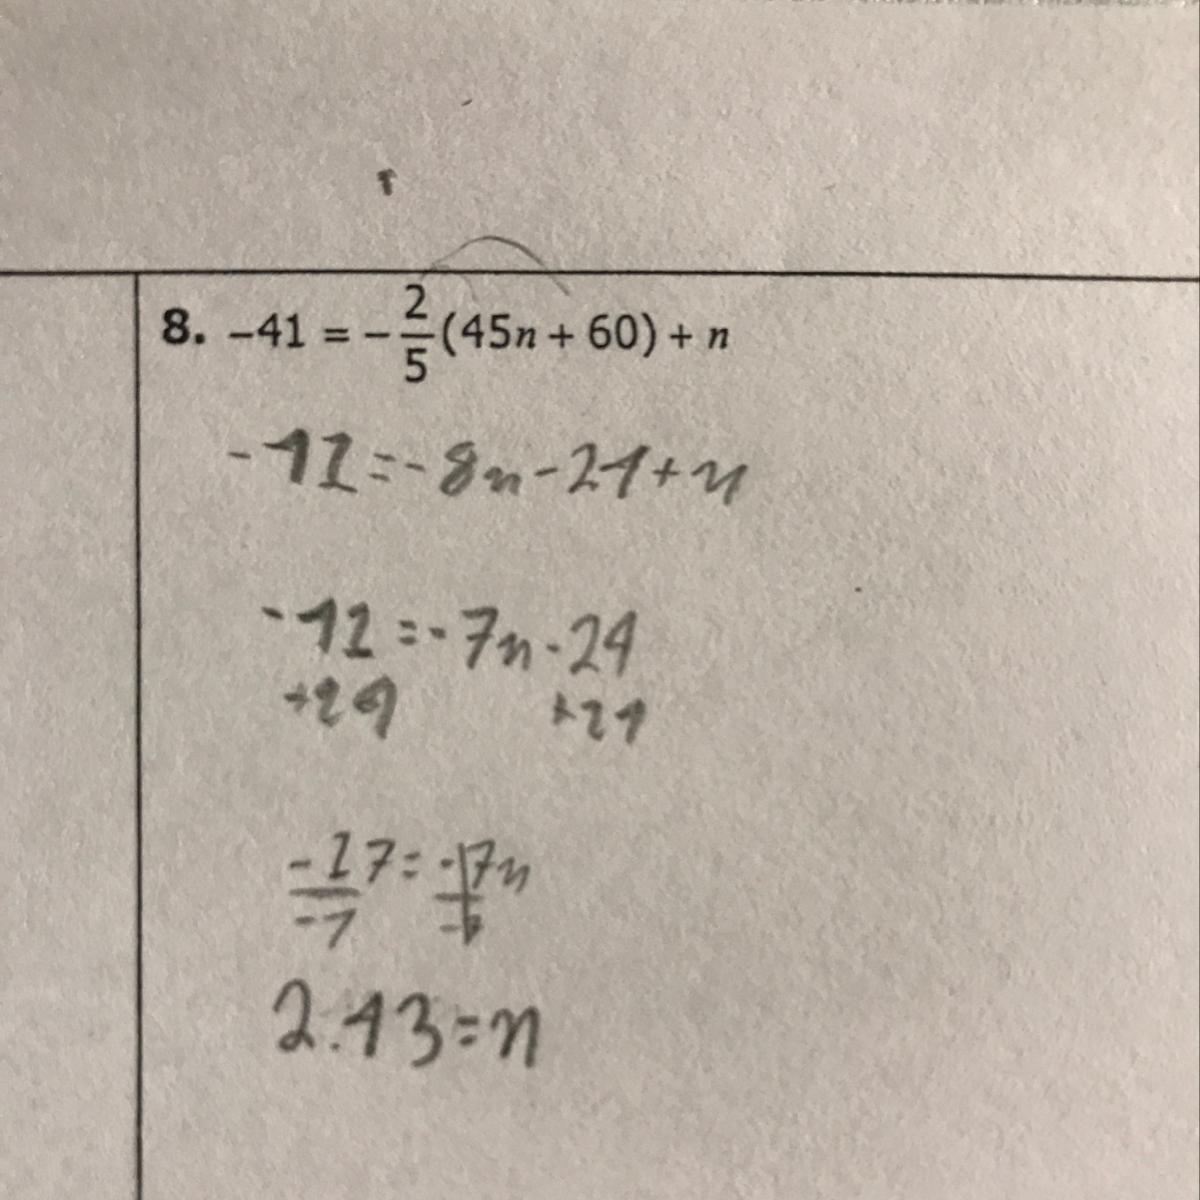 8. -41 = -2/5(45n + 60) + n
-41=-8n-24+n
-41=-7n-24
+24 +24
-17=-7n
-7 -7
2.43=n